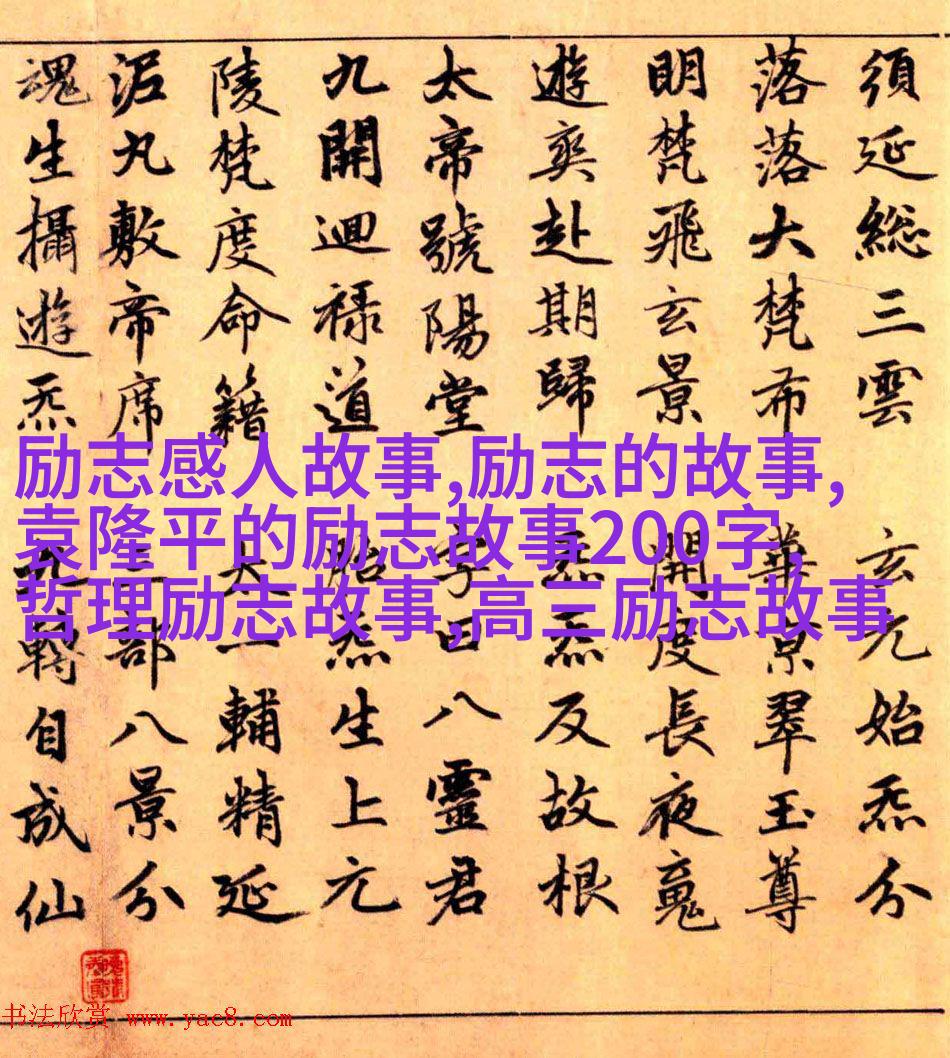 須延総三雲 玄元始炁分
落落大梵布 華景翠玉尊
明梵飛玄景 開度長夜魂
遊爽赴期歸 炁炁反故根
太帝號陽堂 字曰八靈君
九開廻禄道 胎炁生上元
陵梵度命籍 太一輔精延
泥丸敷帝席 三部八景分
魂生攝遊炁 九轉自成仙
励志感人故事,励志的故事,
袁隆平的励志故事200字,
哲理励志故事,高三励志故事
书法欣赏 www.yac8.com